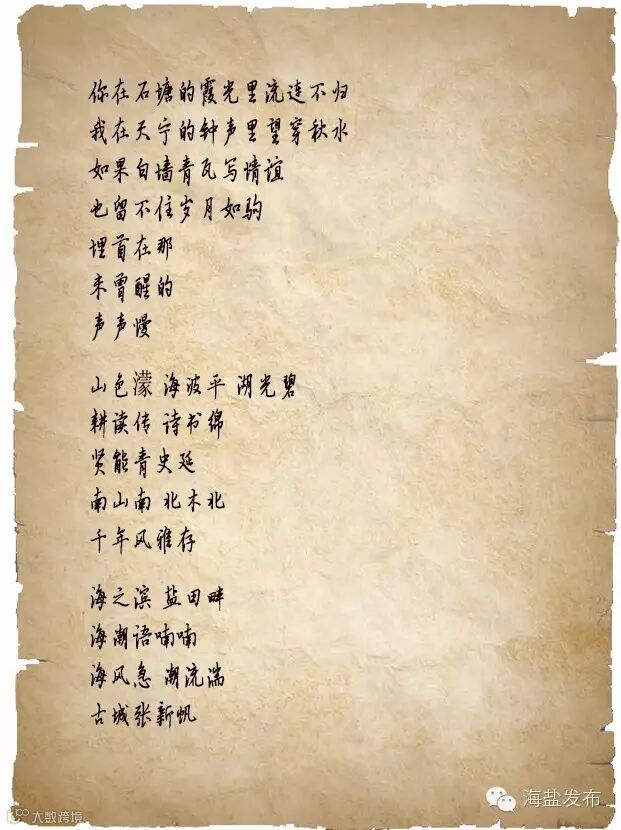 你在石塘的霞光里流连不归
我在天宁的钟声里望穿秋水
如果白墙青瓦写情谊
也留不住岁月如驹
埋首在那
未曾醒的
声声慢
山色濛 海波平 湖光碧
耕读传 诗书绵
贤能青史延
南山南 北木北
千年风雅存
海之滨 盐田畔
海潮语喃喃
海风急 潮流湍
古城张新帆
海盐发布
大数跨境